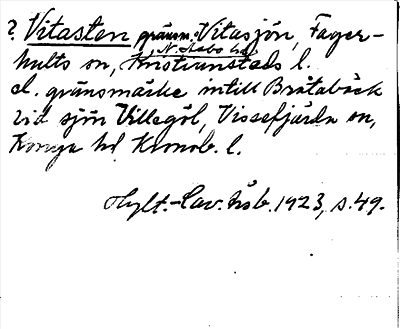 ? Vitasten gränsm. Vitasjön, Fager-
hults sn, N. Åsbo hd Kristianstads l.
el. gränsmärke intill Bråtabäck
vid sjön Villegöl, Vissefjärda sn,
Konga hd Kronob. l.
Hylt.-Cav. håb. 1923, s. 49.